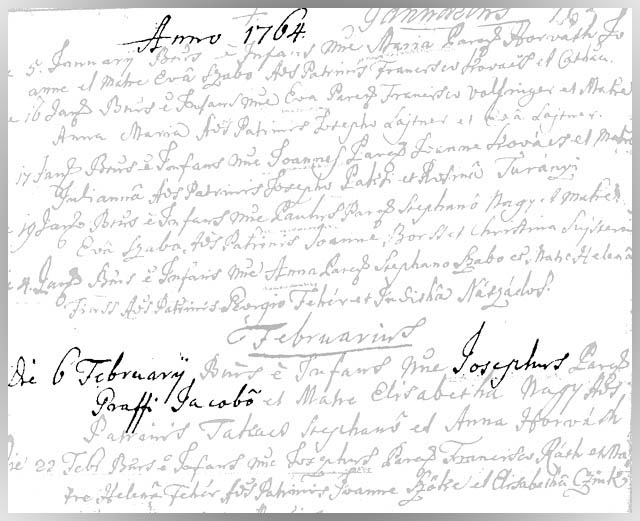 Anno 1764.
5. January Btus e Infans nne Maria Pareñ Horváth Jo
anne et Matre Evâ Szabo Adś Patrinis Francisco Kovács et Cathar.
16 Janś Btus e Infans nne Eva Pareñ Francisco Volfinger et Matre
Anna Maria Adś Patrinis Josepho Lajtner et Eva Lajtner.
17 Janś Btus e Infans nne Joannes Pareñ Joanne Kovács et Matre
Juliannâ Adś Patrinis Josepho et Rosina Turányi
19 Janś Btus e Infans nne Paulus Pareñ Stephano Nagy et Matre
Evâ Szabo Adś Patrinis Joanne et Christina
Janś Btus e Infans nne Anna Pareñ Stephano Szabo et Matre Helenâ
Adś Patrinis Georgio Fehér et Judithâ Nászádos.
Februarius
Die 6 Februarÿ Btus e Infans nne Josephus Pareñ
Praffi Jacobô et Matre Elisabetha Nagy Adś
Patrinis Stephanô et Anna Horváth
Die 22 Feb Btus e Infans nne Josephus Pareñ Francisco Ráth et Ma
tre Helenâ Fehér Adś Patrinis Joanne et Elisabethâ